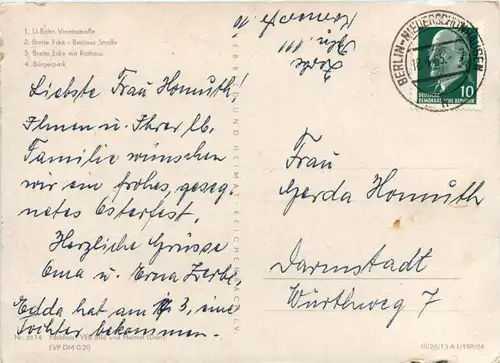 1. U-Bahn Vinetastraße
2. Breite Ecke - Berliner Straße
3. Breite Ecke mit Rathaus
4. Bürgerpark
Liebste Frau Homuth!
Ihnen u. Ihrer lb.
Familie wünschen
wir ein frohes, geseg-
netes Osterfest.
Herzliche Grüsse
Oma u. Erna Zerbe.
Edda hat am 3, eine
Tochter bekommen.
Nr. 6114
VEB Bild und Heimat
EVP-DM 0,20
VEB BILD UND HEIMAT REICHENBACH I. V.
Zerbe
BERLIN-NIEDERSCHÖNHAUSEN
DEUTSCHE
DEMOKRATISCHE REPUBLIK
10
Frau
Gerda Homuth
Darmstadt
Würthweg 7
III/26/13 A 1/189/64